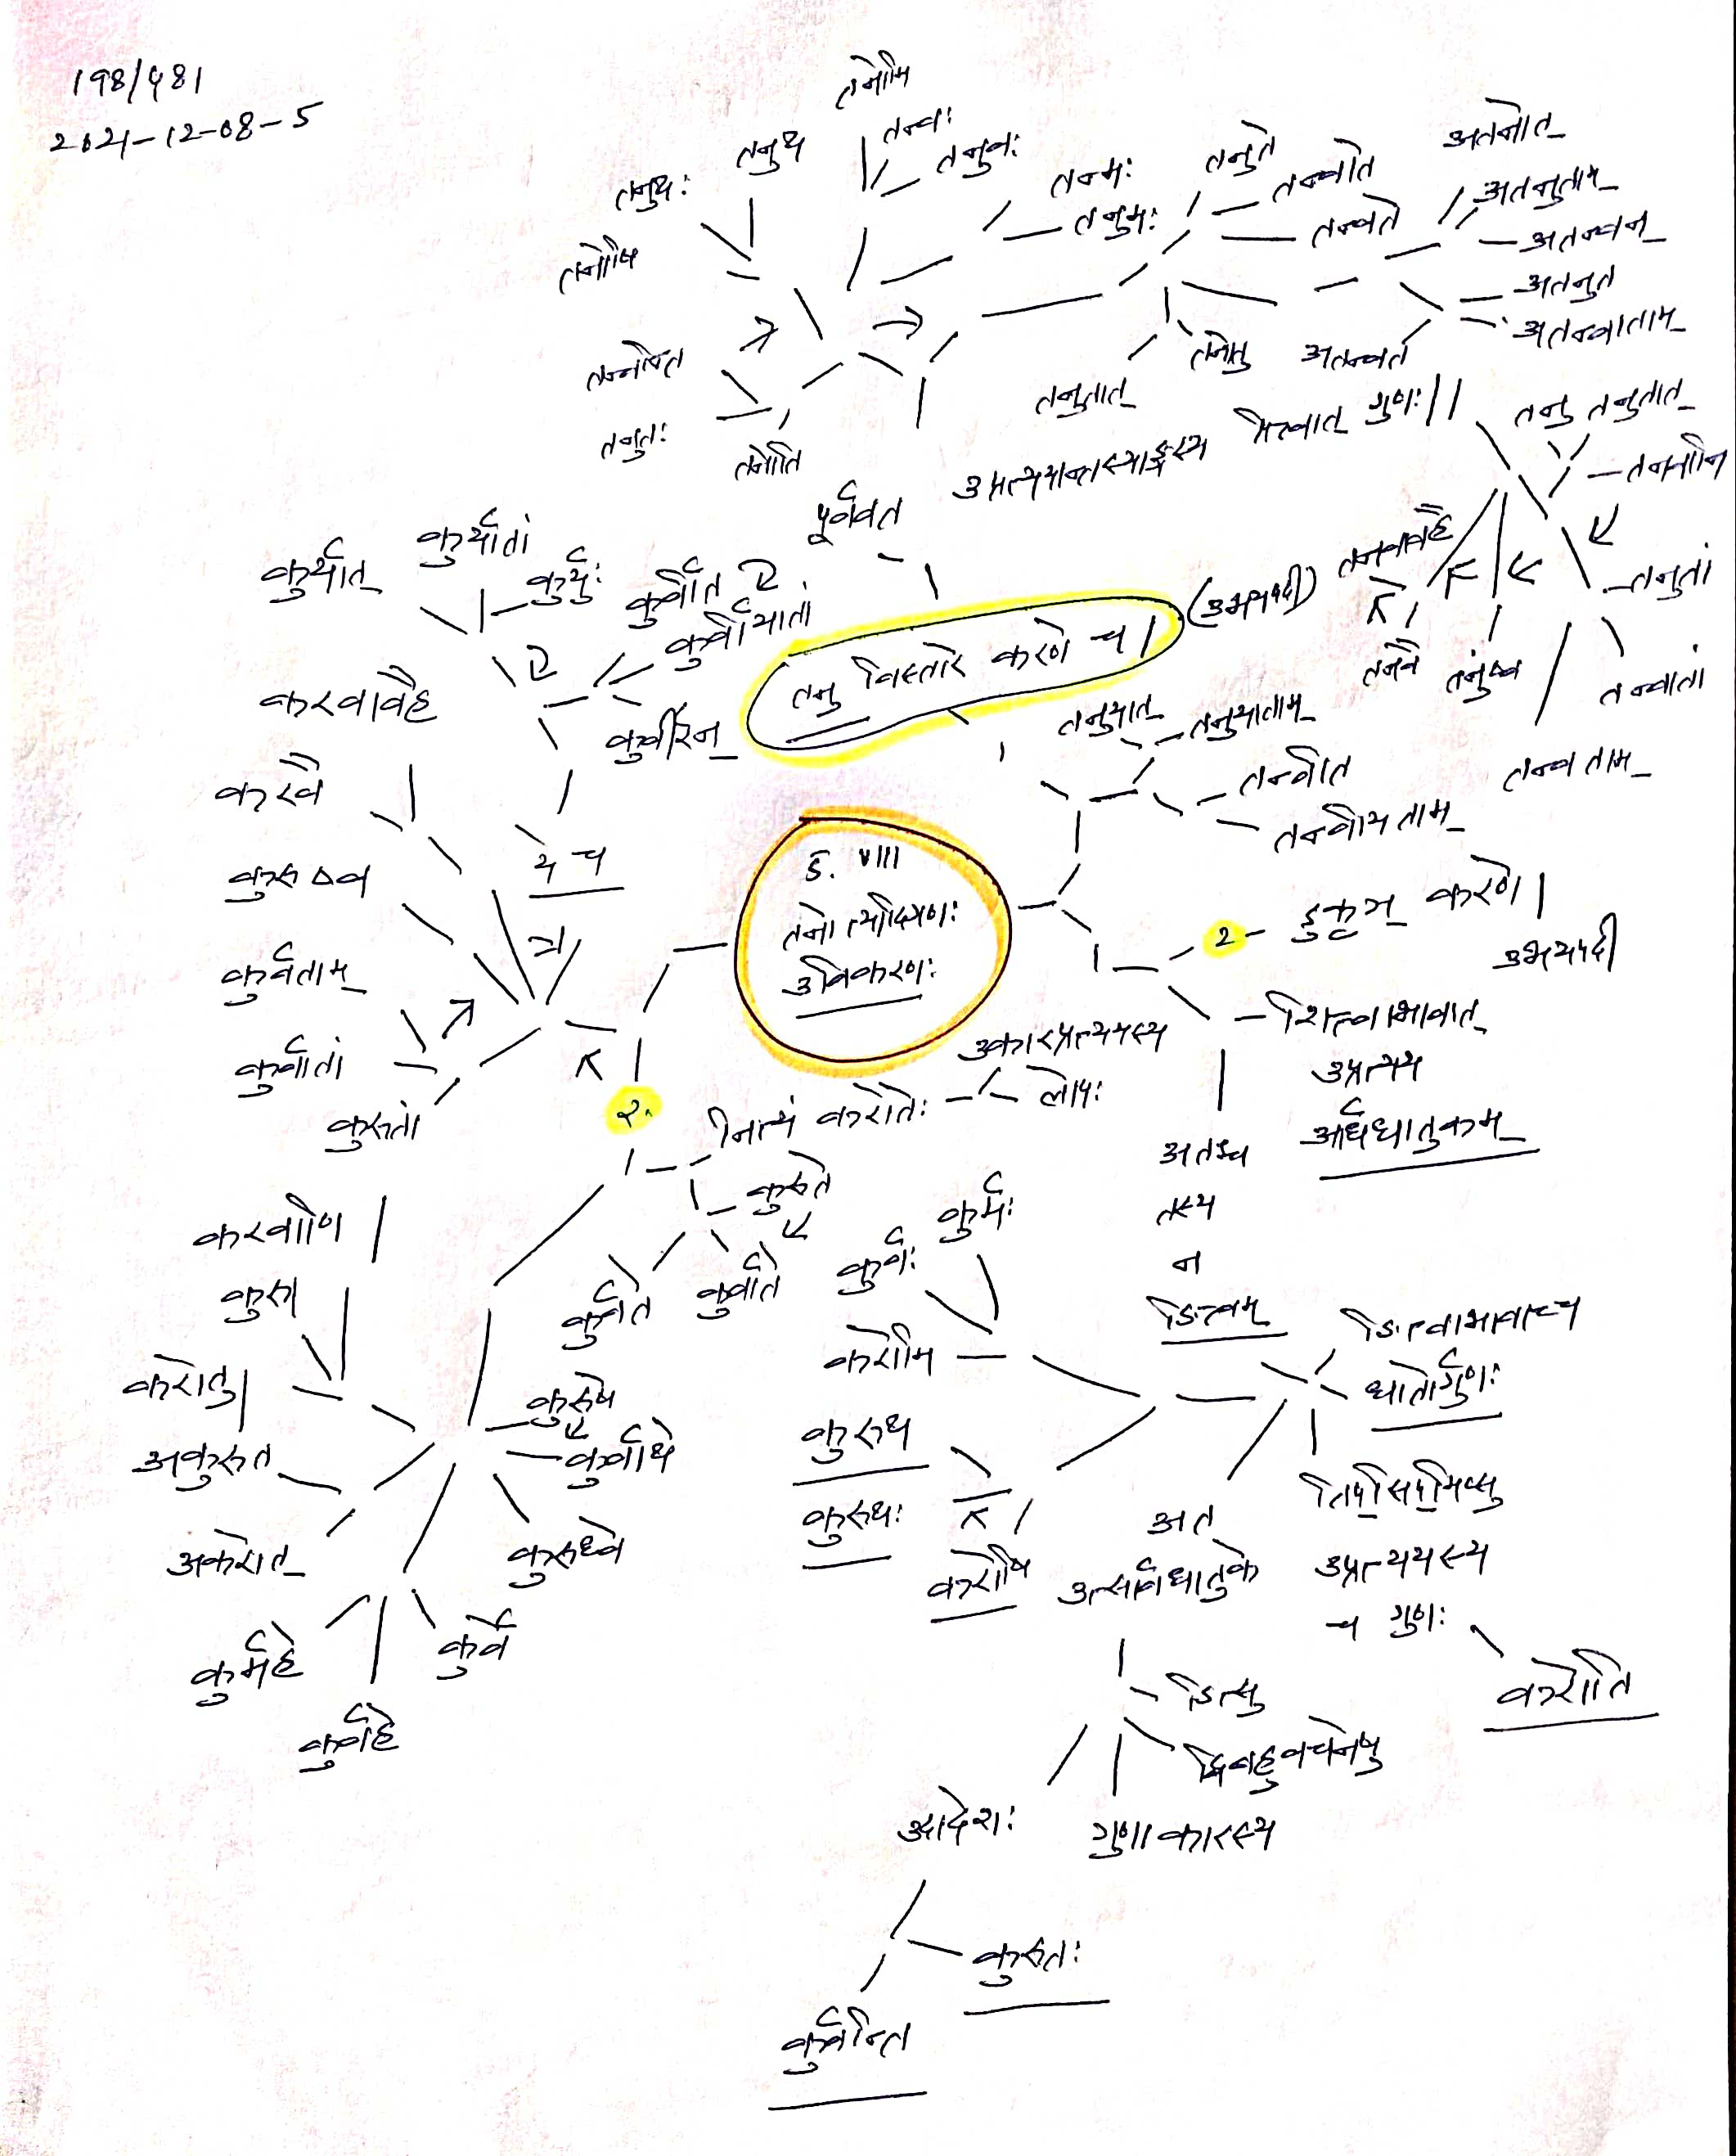 198/481
2021-12-08-5
तनोमि
तन्वः
तनुवः
तनुथ
तनुथः
तनोषि
तन्मः
तनुमः
तनुते
तन्वाते
तन्वते
अतनोत्
अतनुताम्
अतन्वन्
अतनुत
अतन्वाताम्
अतन्वत
तनोतु
तनुतात्
तन्वन्ति
तनुतः
तनोति
पूर्ववत
उप्रत्ययान्तस्याङ्गस्य
पित्वात् गुणः||
तनु तनुतात्
तनवानि
तनुतां
तन्वातां
तन्वताम्
तनुष्व
तनवै
तनवावहै
तनु विस्तारे करणे च|
(उभयपदी)
तनुयात्
तनुयाताम्
तन्वीत
तन्वीयताम्
कुर्यात्
कुर्यातां
कुर्युः
कुर्वीत
कुर्वीयातां
कुर्वीरन्
ये च
करवावहै
करवै
कुरुध्व
कुर्वताम्
कुर्वातां
कुरुतां
8. VIII
तनोत्यादिगणः
उविकरणः
2 - डुकृञ् करणे|
उभयपदी
शित्वाभावात्
उप्रत्यय
आर्धधातुकम्
अतश्च
तस्य
न
ङित्वम्
ङित्वाभावाच्च
धातोर्गुणः
तिप्सिप्मिप्सु
उप्रत्ययस्य
च गुणः
करोति
२.
नित्यं करोतेः
उकारप्रत्ययस्य
लोपः
कुरुते
कुर्वाते
कुर्वते
कुर्वः
कुर्मः
करोमि
कुरुथ
कुरुथः
करोषि
अत
उत्सार्वधातुके
ङित्सु
द्विबहुवचनेषु
गुणाकारस्य
आदेशः
कुरुतः
कुर्वन्ति
करवाणि
कुरु
करोतु
अकुरुत
अकरोत्
कुरुषे
कुर्वाथे
कुरुध्वे
कुर्वे
कुर्वहे
कुर्महे